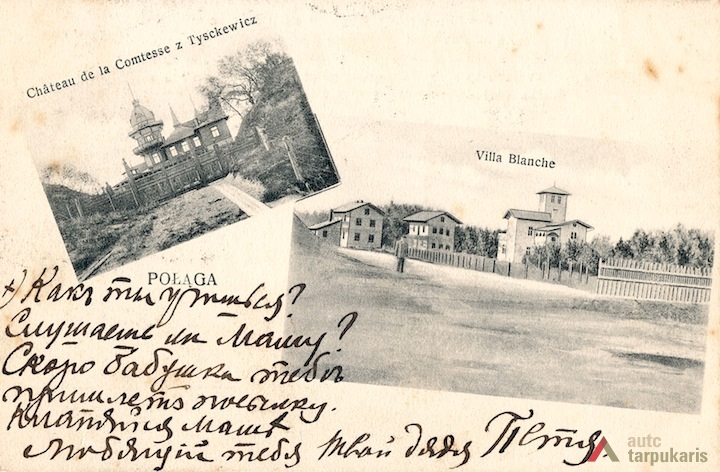 Château de la Comtesse z Tysckewicz
Villa Blanche
POŁĄGA
+) Какъ ты учишься?
Слушаешь ли Машу?
Скоро бабушка тебѣ
пришлетъ посылку.
Кланяйся Машѣ
Любящій тебя твой дядя Петя
autc
tarpukaris